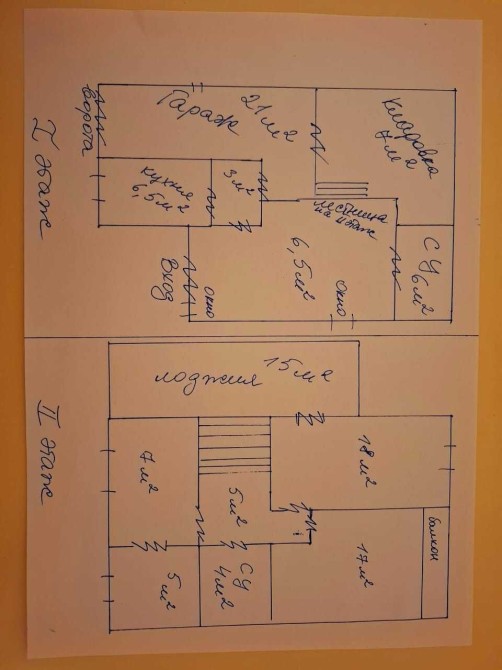 I этаж
Ворота
Гараж
21 м2
Кладовка
7 м2
кухня
6,5 м2
3 м2
лестница
на II этаж
СУ
6 м2
6,5 м2
Вход
окно
окно
II этаж
лоджия 15 м2
7 м2
5 м2
18 м2
17 м2
балкон
СУ
4 м2
5 м2